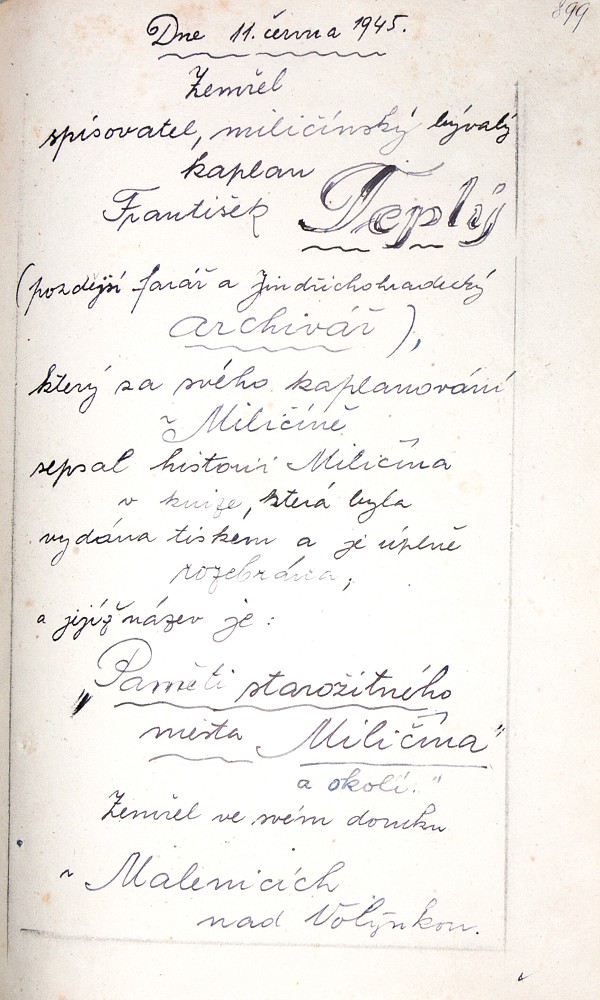 899
Dne 11. června 1945.
Zemřel
spisovatel, miličínský bývalý
kaplan
František Teplý
(pozdější farář a Jindřichohradecký
archivář),
který za svého kaplanování
v Miličíně
sepsal historii Miličína
v knize, která byla
vydána tiskem a je úplně
rozebrána;
a jejíž název je:
„Paměti starožitného
města Miličína"
a okolí."
Zemřel ve svém domku
v Malenicích
nad Volyňkou.